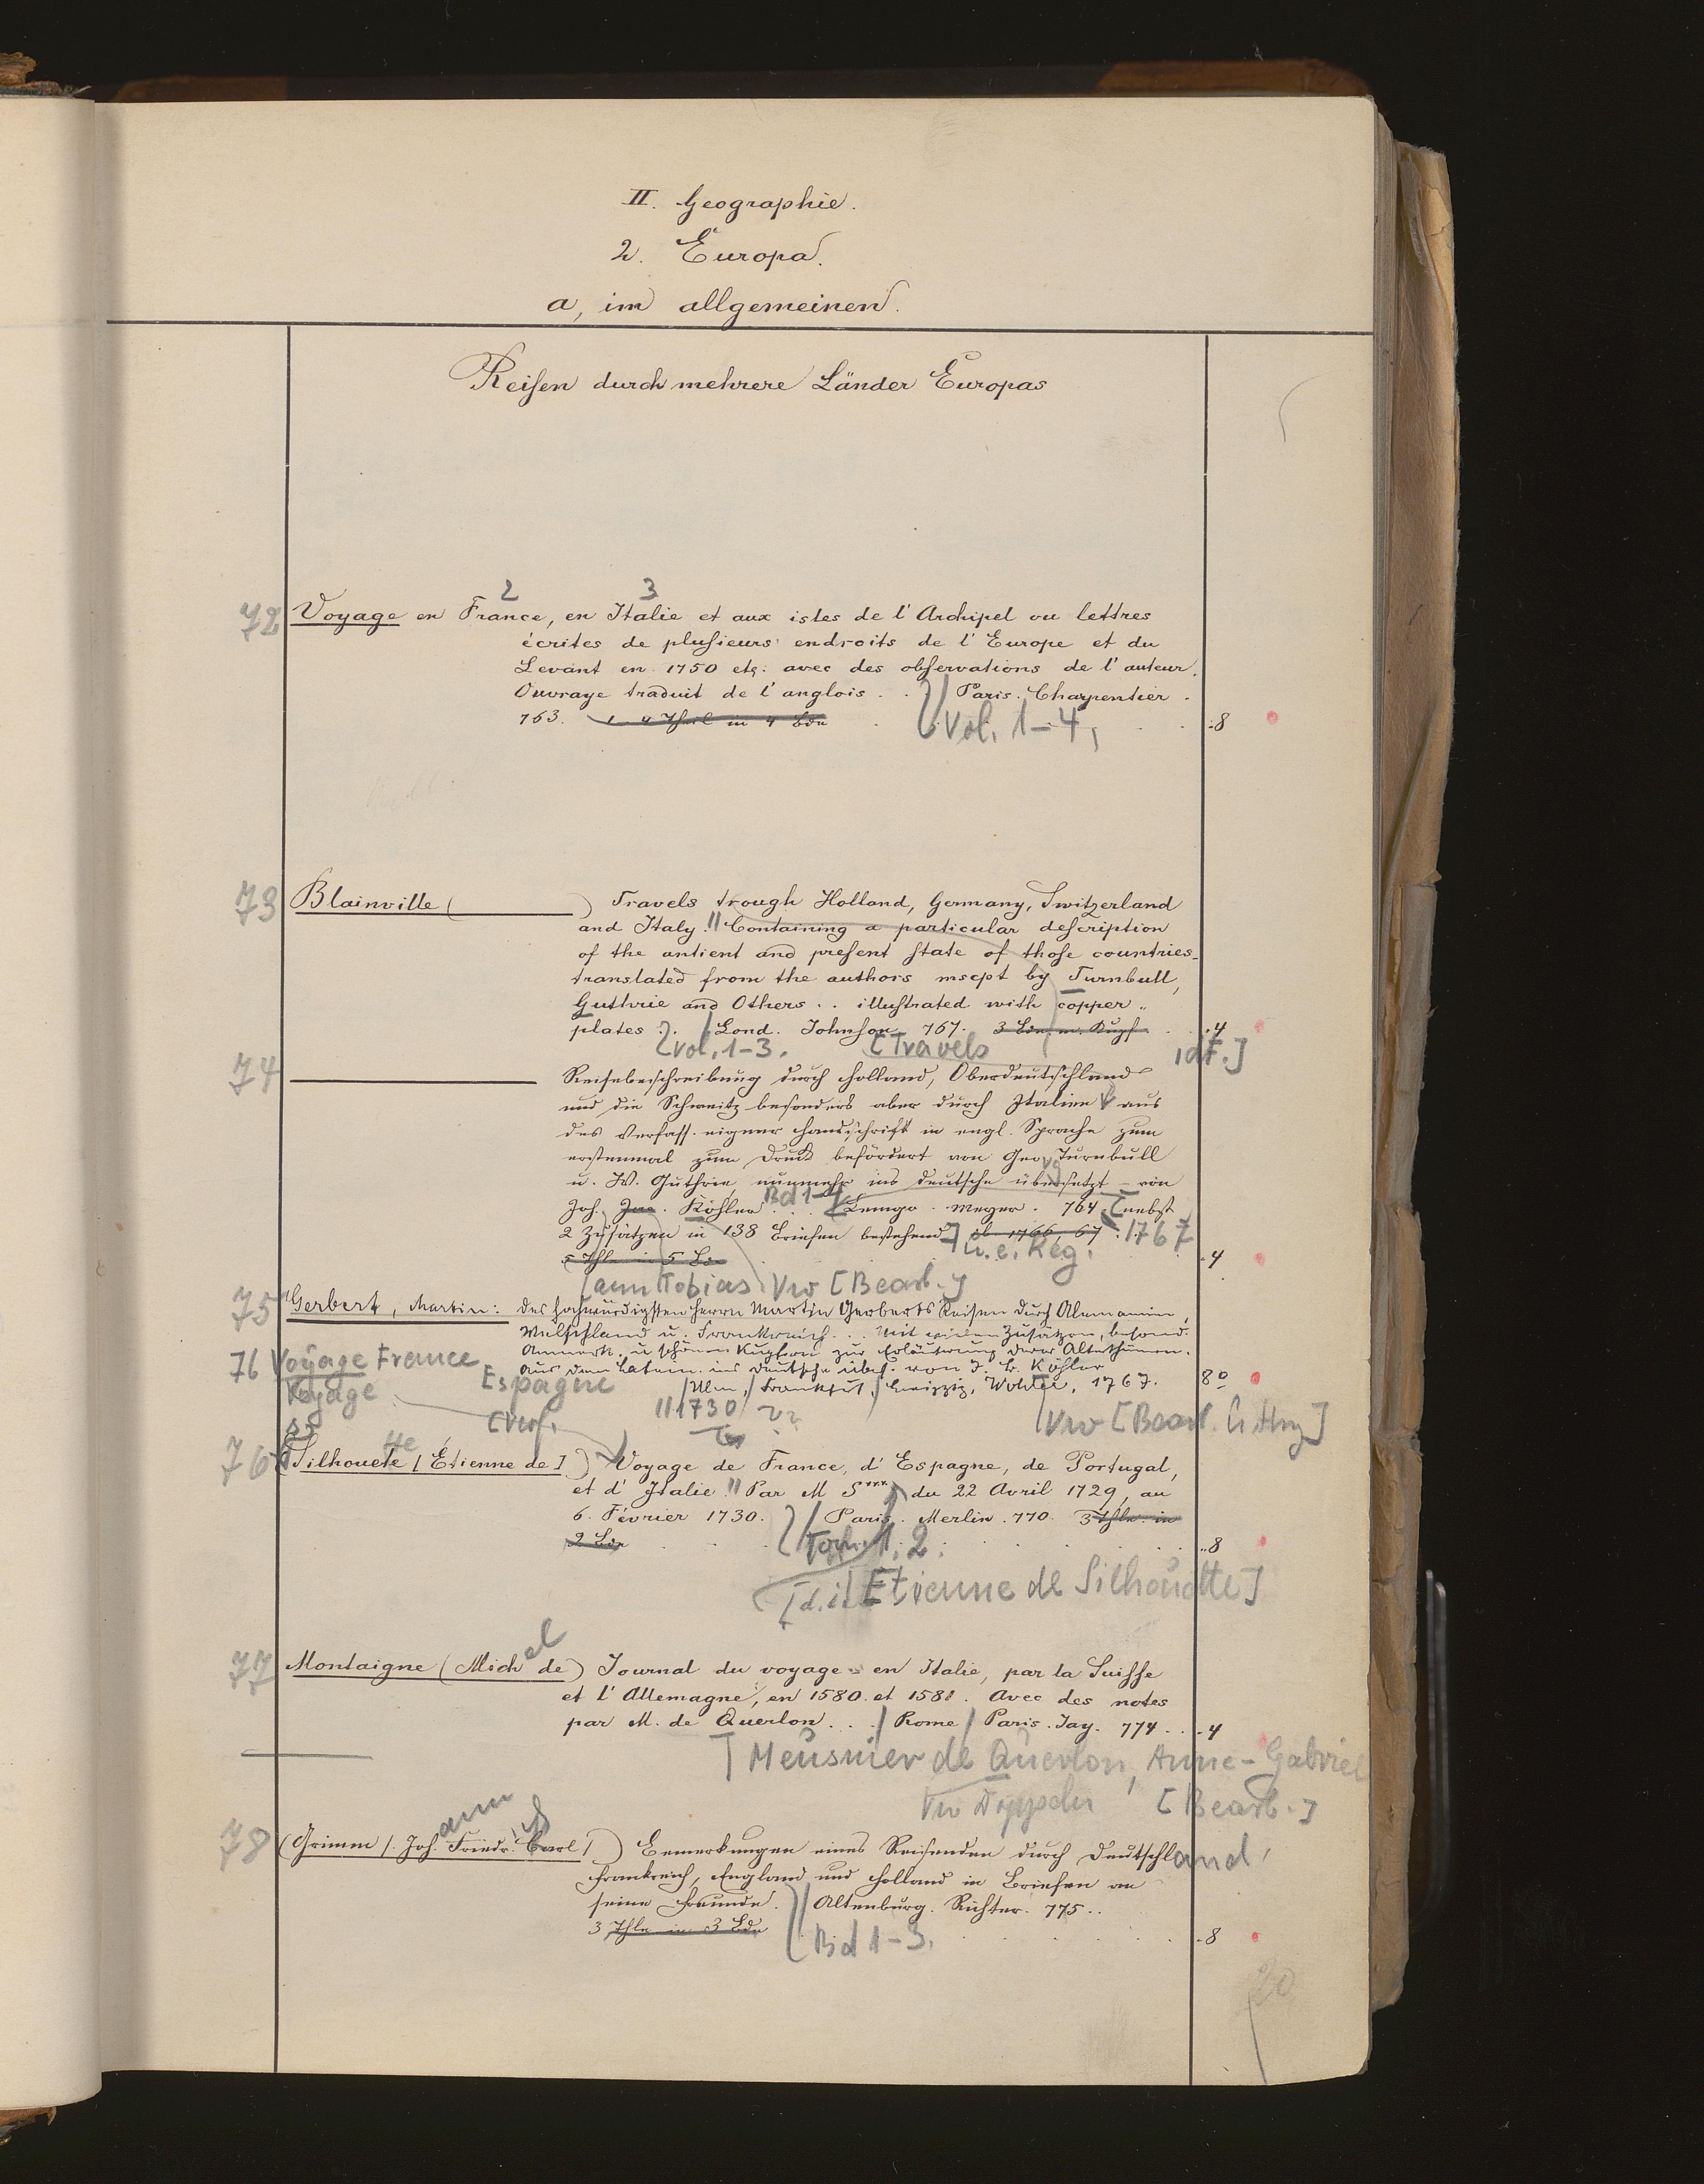 II. Geographie.
2. Europa.
a, im allgemeinen.
Reisen durch mehrere Länder Europas
2 3
72 Voyage en France, en Italie et aux isles de l'Archipel ou lettres
écrites de plusieurs endroits de l'Europe et du
Levant en 1750 etc. avec des observations de l'auteur.
Ouvrage traduit de l'anglois . . Paris. Charpentier.
763. 1-4 Theil in 4 Bdn Vol. 1-4, .8
73 Blainville ( ) Travels trough Holland, Germany, Switzerland
and Italy. Containing a particular description
of the antient and present state of those countries
translated from the authors mscpt by Turnbull,
Guthrie and Others . . illustrated with copper
plates . . Lond. Johnson 767. 3 Bde. m. Kupf. .4
Vol. 1-3. [Travels, dt.]
74 Reisebeschreibung durch Holland, Oberdeutschland
und die Schweitz besonders aber durch Italien aus
des Verfass. eigner Handschrift in engl. Sprache zum
erstenmal zum Druck befördert von Geo Turnbull
u. W. Guthrie, nunmehr ins deutsche übersetzt - von
Joh. Köhler . . . Bd 1-4 Lemgo. Meyer. 764. [nebst
2 Zusätzen in 138 Briefen bestehend] ib. 1766, 67. 1767
u. e. Reg.
5 Thle in 5 Bd. .4
[ann Tobias Vw [Bearb.]
75 Gerbert, Martin: Des hochwürdigsten Herrn Martin Gerberts Reisen durch Alemannien,
Welschland u. Frankreich . . . mit vielen Zusätzen, besond.
Anmerk. u. schönen Kupfern zur Erläuterung derer Alterthümer.
Aus dem Latein. ins Deutsche übers. von J. L. Köhler
Ulm, Frankfut, Leipzig, Wohler, 1767. 8°
Vw [Bearb. u. Hrsg]
76 Voyage France
Espagne
Voyage
[Verf. 1730
76 Silhouete [Étienne de] ) Voyage de France, d'Espagne, de Portugal,
et d'Italie. Par M S*** du 22 Avril 1729, au
6. Février 1730. Paris. Merlin. 770. 3 Thle. in
2 Bdn Tom. 1. 2. .8
[d.i. Etienne de Silhouette]
77 Montaigne (Michel de) Journal du voyage en Italie, par la Suisse
et l'Allemagne, en 1580 et 1581. Avec des notes
par M. de Querlon . . . Rome Paris. Jay. 774 . . .4
[Meusnier de Querlon, Anne-Gabriel
[Bearb.]
78 (Grimm [Joh.ann Friedr. Carl] ) Bemerkungen eines Reisenden durch Deutschland,
Frankreich, England und Holland in Briefen an
seine Freunde. Altenburg. Richter. 775 . .
3 Thle in 3 Bdn Bd 1-3. .8